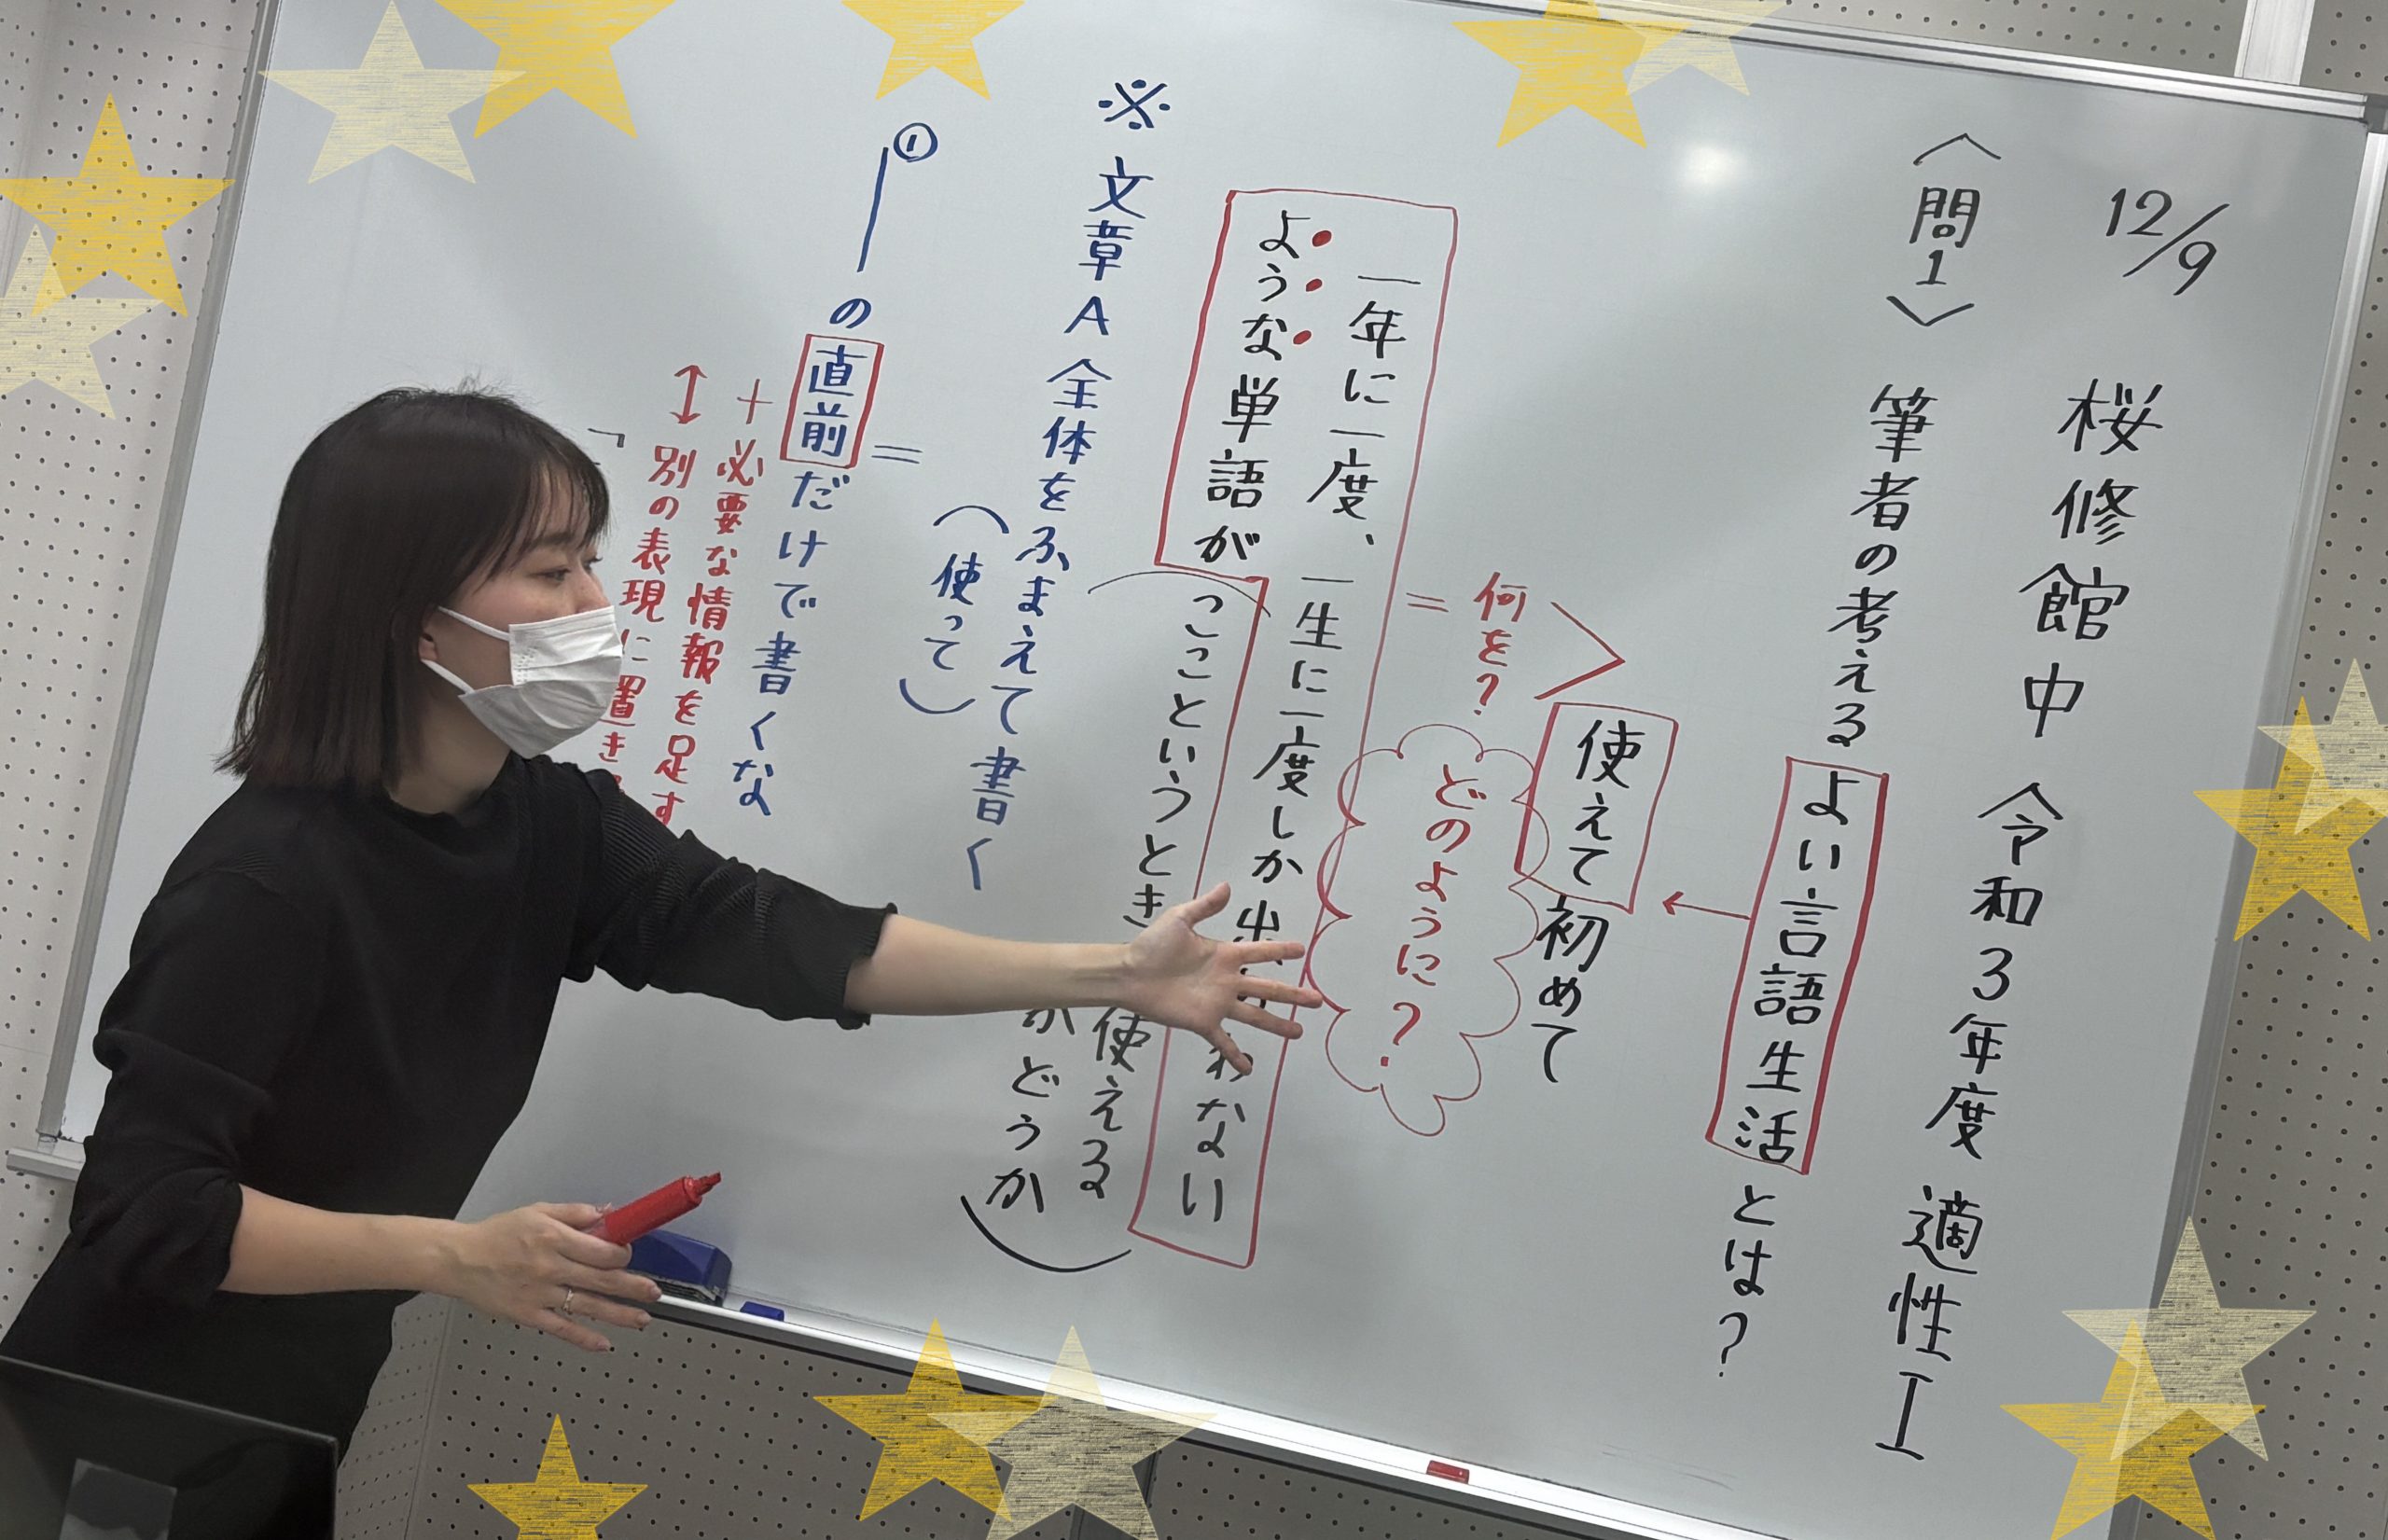 12/9 桜修館中 令和3年度 適性I
〈問1〉 筆者の考えるよい言語生活とは?
使えて初めて
何を?
どのように?
=
一年に一度、一生に一度しか出
わない
ような単語が
ここというとき
使える
かどうか
※文章A全体をふまえて書く
(使って)
=
①
の直前だけで書くな
+必要な情報を足す
↕別の表現に置き